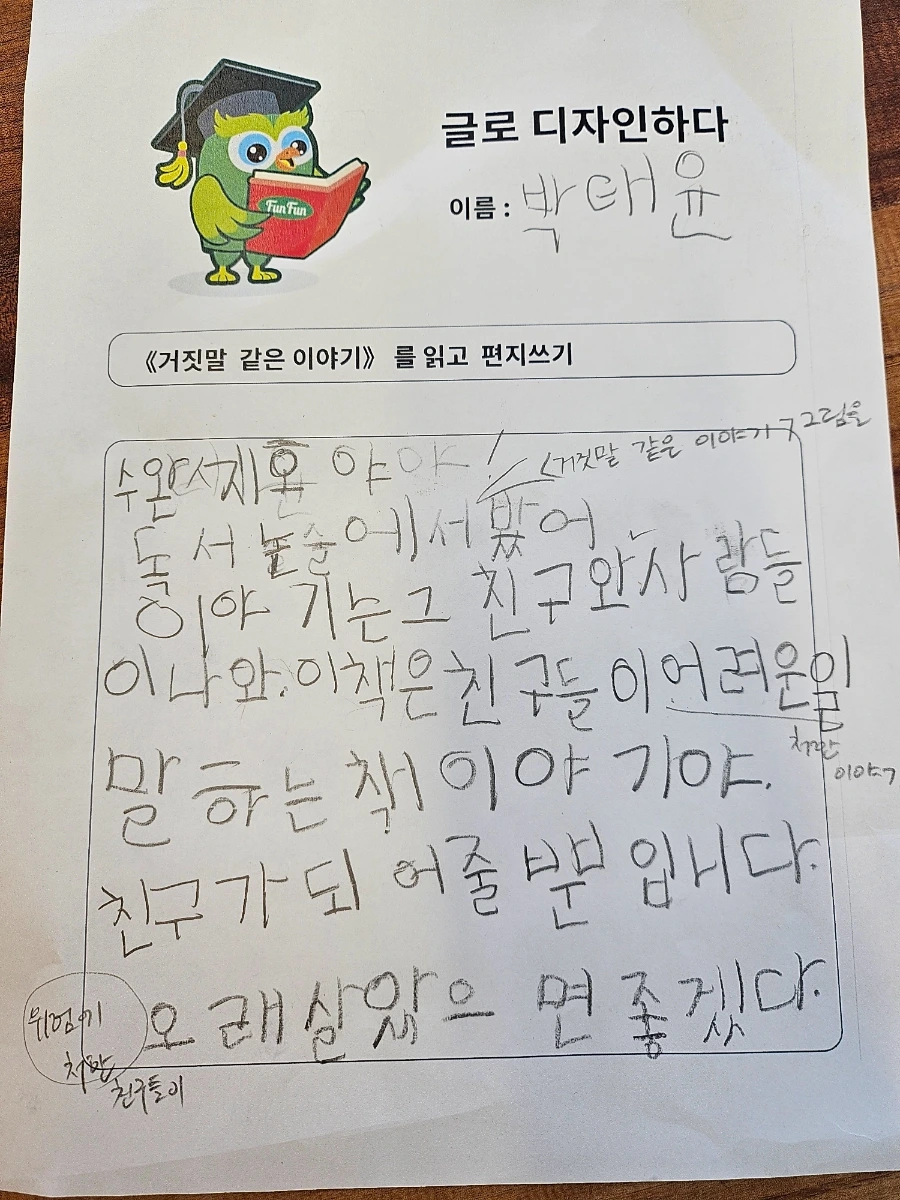 글로 디자인하다
FunFun
이름 : 박태윤
《거짓말 같은 이야기》 를 읽고 편지쓰기
야
<거짓말 같은 이야기> 그림을
독서 논술에서 봤어
이야기는 그 친구와 사람들
이 나와. 이 책은 친구들이 어려운 일
처한
이야기
말 하는 책 이야 기야.
친구가 되 어줄 분 입니다.
오래 살았으 면 좋겠다.
위험에
처한
친구들이